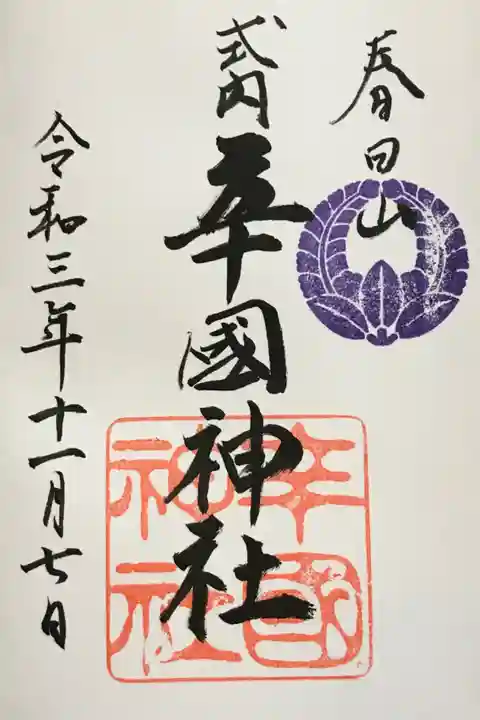 春日山
式内 辛國神社
令和三年十一月七日
辛國
神社